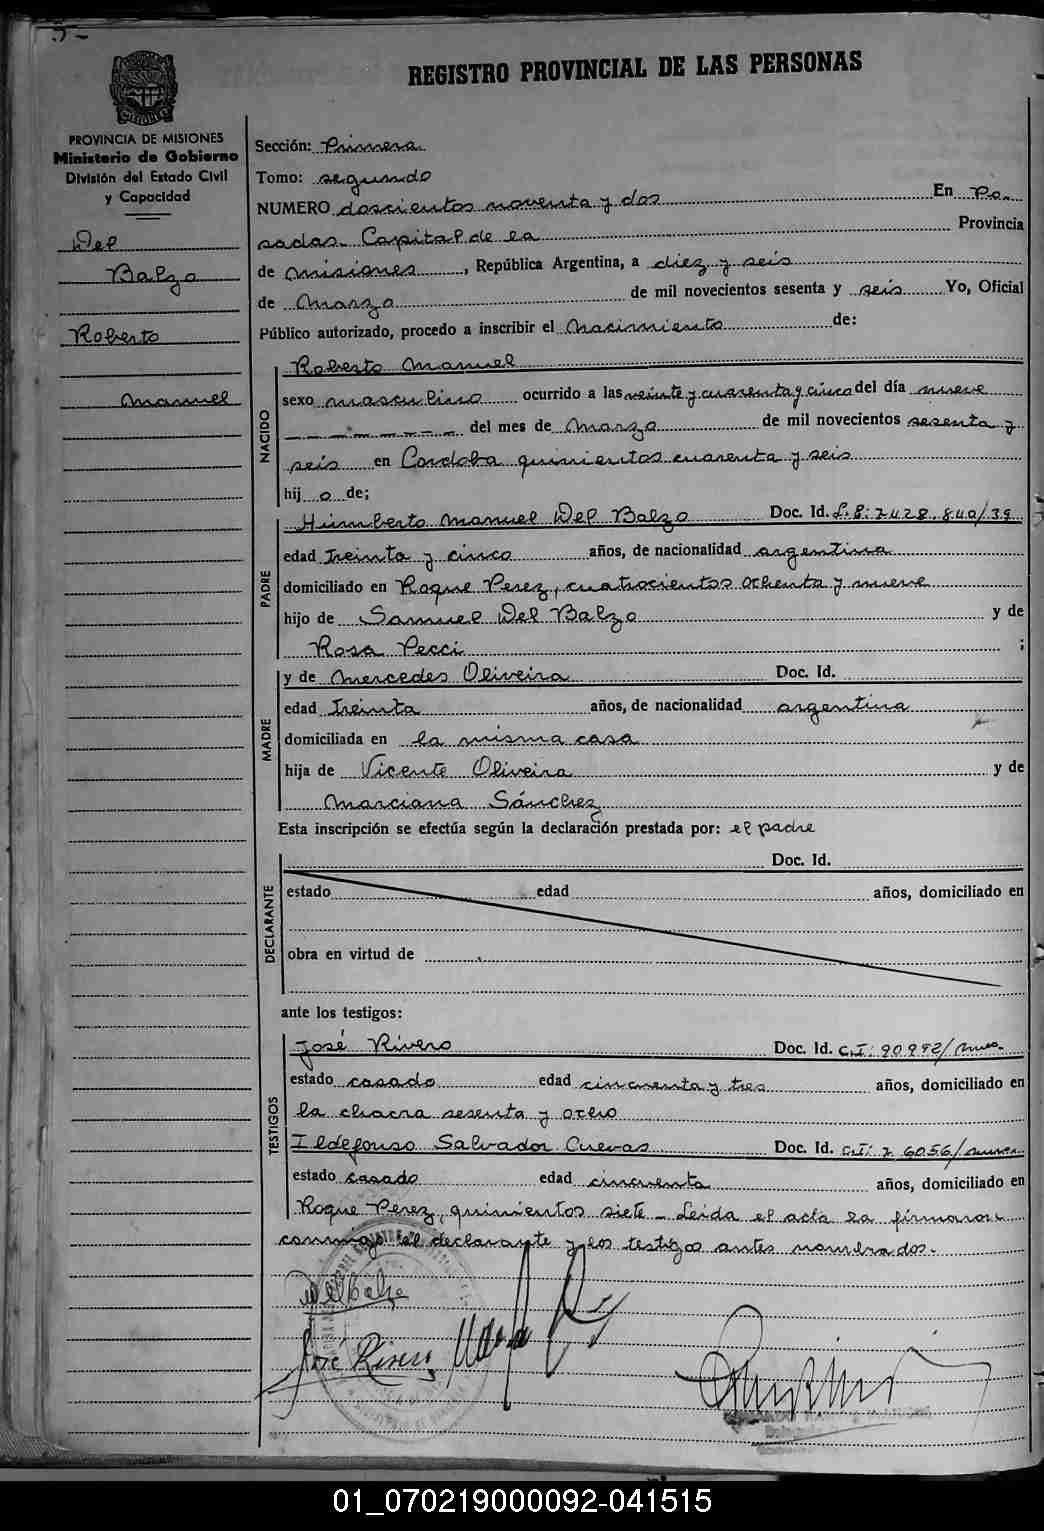 5-
PROVINCIA DE MISIONES
Ministerio de Gobierno
División del Estado Civil
y Capacidad
Del
Balzo
Roberto
Manuel
REGISTRO PROVINCIAL DE LAS PERSONAS
Sección: Primera
Tomo: segundo
NUMERO doscientos noventa y dos En Po-
sadas. Capital de la Provincia
de Misiones, República Argentina, a diez y seis
de Marzo de mil novecientos sesenta y seis Yo, Oficial
Público autorizado, procedo a inscribir el Nacimiento de:
NACIDO
Roberto Manuel
sexo masculino ocurrido a las veinte y cuarenta y cinco del día nueve
del mes de Marzo de mil novecientos sesenta y
seis en Cordoba quinientos cuarenta y seis
hij o de;
PADRE
Humberto Manuel Del Balzo Doc. Id. L.E: 7.428.840/39
edad treinta y cinco años, de nacionalidad argentina
domiciliado en Roque Perez, cuatrocientos ochenta y nueve
hijo de Samuel Del Balzo y de
Rosa Pecci ;
MADRE
y de Mercedes Oliveira Doc. Id.
edad treinta años, de nacionalidad argentina
domiciliada en la misma casa
hija de Vicente Oliveira y de
Marciana Sánchez
Esta inscripción se efectúa según la declaración prestada por: el padre
DECLARANTE
Doc. Id.
estado edad años, domiciliado en
obra en virtud de
ante los testigos:
TESTIGOS
José Rivero Doc. Id. C.I: 90992/mnes.
estado casado edad cincuenta y tres años, domiciliado en
la chacra sesenta y ocho
Ildefonso Salvador Cuevas Doc. Id. C.I: 26056/mnes.
estado casado edad cincuenta años, domiciliado en
Roque Perez, quinientos siete - Leida el acta la firmaron
conmigo el declarante y los testigos antes nombrados.
Del Balzo
José Rivero
01_070219000092-041515